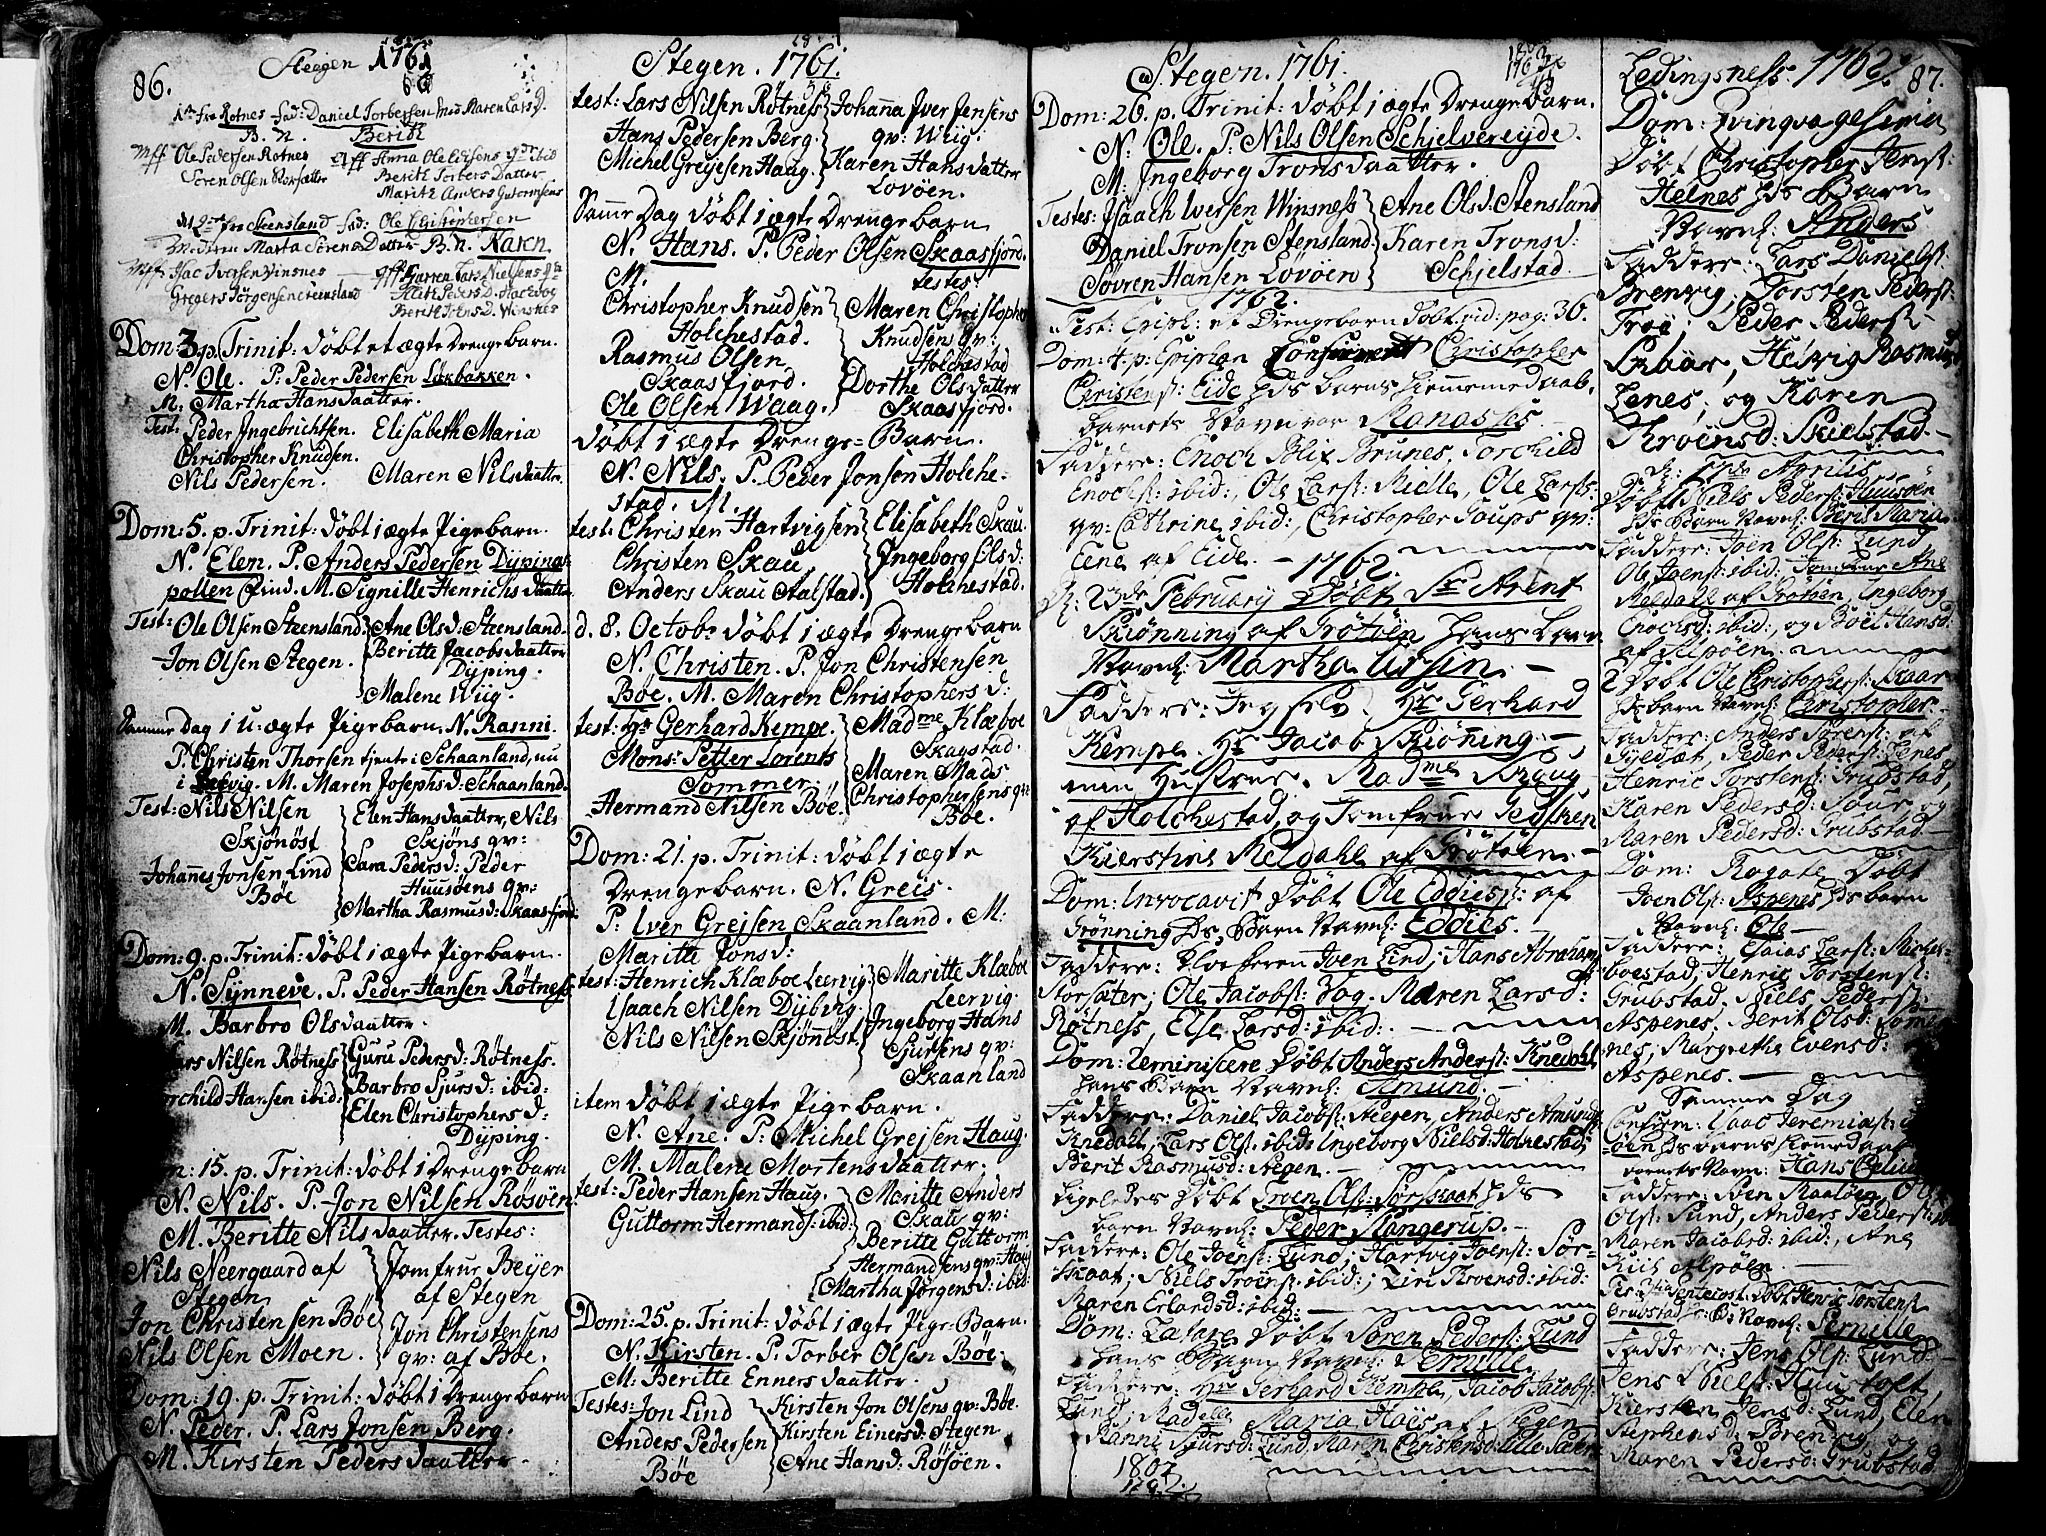 86.
Stegen 1761
1de fra Rotnes fad: Daniel Torbersen Mod: Maren Lars D.
B. n. Berith
Mff Ole Pedersen Rotnes
Søren Olsen Storsætter
qff Anna Ole Edisens qde ibid
Berith Torbers Datter
Marith Anders Gutormsens
fra Steensland fad: Ole Christophersen
Moderen Marta Sørens Datter B. N. Karen
Mff Isac Iversen Vinsnes
Gregers Jørgensen Steensland
qff Karren Lars Nielsens qde
Berith Jens D. Winsnes
Dom: 3. p. Trinit: døbt et ægte Drengebarn.
N. Ole. P: Peder Pedersen Løkbakken.
M. Martha Hansdaatter.
Test: Peder Ingebrichtsen.
Christopher Knudsen.
Nils Pedersen.
Elisabeth Maria
Maren Nilsdaatter.
Dom: 5. p. Trinit: døbt 1 ægte Pigebarn.
N. Elen. P. Anders Pedersen Dypings
pollen Eiind. M. Signille Henrichs daatter
Test: Ole Olsen Steensland
Jon Olsen Stegen.
Ane Olsd: Steensland.
Beritte Jacobsdaatter
Dyping.
Malene Wiig.
Samme Dag 1 u: ægte Pigebarn. N. Ranni.
P. Christen Thorsen tjente i Schaanland, nu
i Leervig. M. Maren Josephsd: Schaanland.
Test: Nils Nilsen
Skjønøst
Johannes Jonsen Lind
Bøe
Elen Hansdaatter, Nils
Skjøns qv:
Sara Pedersd: Peder
Huusøens qv:
Martha Rasmusd: Skaasfjord
Dom: 9. p. Trinit: døbt 1 ægte Pigebarn.
N. Synneve. P. Peder Hansen Røtness
M. Barbro Olsdaatter.
Lars Nilsen Røtness
Torchild Hansen ibid:
Guru Pedersd: Røtness.
Barbro Sjursd: ibid:
Elen Christophersd:
Dyping.
Dom: 15. p. Trinit: døbt 1 Drengebarn
N. Nils. P. Jon Nilsen Røsøen.
M. Beritte Nilsdaatter. Testes:
Nils Neergaard af
Stegen
Jon Christensen Bøe
Nils Olsen Moen.
Jomfrue Beyer
af Stegen
Jon Christensens
qv: af Bøe.
Dom: 19. p. Trinit: døbt 1 Drengebarn
N. Peder. P. Lars Jonsen Berg.
M. Kirsten Pedersdaatter.
Stegen. 1761.
test: Lars Nilsen Røtness
Hans Pedersen Berg
Michel Greyesen Haug
Johanna Iver Jensens
qv: Wiig:
Karen Hansdaatter
Lovøen.
Samme Dag døbt 1 ægte Drengebarn
N. Hans. P. Peder Olsen Skaasfjord.
M. testes:
Christopher Knudsen
Holchestad.
Rasmus Olsen
Skaasfjord.
Ole Olsen Waag.
Maren Christopher
Knudsens qv:
Holchestad
Dorthe Olsdatter
Skaasfjord.
døbt 1 ægte Drenge-Barn.
N. Nils. P. Peder Jonsen Holche-
stad. M.
test: Christen Hartvigsen
Christen Skau
Anders Skau Aalstad.
Elisabeth Skau.
Ingeborg Olsd:
Holchestad.
d. 8. Octobr døbt 1 ægte Drengebarn
N. Christen. P. Jon Christensen
Bøe. M. Maren Christophersd:
test: Hr Gerhard Kempe.
Mons: Petter Lorents
Sommer.
Hermand Nilsen Bøe.
Madme Klæboe
Skagstad.
Maren Mads
Christophersens qv:
Bøe.
Dom: 21. p. Trinit: døbt 1 ægte
Drengebarn. N. Greis.
P. Iver Grejsen Skaanland. M:
Maritte Jonsd:
test: Henrich Klæboe Leervig
Isaach Nilsen Dybvig.
Nils Nilsen Skjønnøst.
Maritte Klæboe
Leervig.
Ingeborg Hans
Sjursens qv:
Skaanland
item døbt 1 ægte Pigebarn.
N. Ane. P: Michel Grejsen Haug.
M. Malene Mortensdaatter.
test: Peder Hansen Haug.
Guttorm Hermands: ibid:
Maritte Anders
Skau qv:
Beritte Guttorm
Hermandsens qv: Haug
Martha Jørgensd: ibid:
Dom: 25. p. Trinit: døbt 1 ægte Pige-Barn.
N. Kirsten. P. Torber Olsen Bøe.
M: Beritte Ennersdaatter.
Testes: Jon Lind
Anders Pedersen
Bøe
Kirsten Jon Olsens qv: Bøe.
Kirsten Einersd: Stegen
Ane Hansd: Røsøen.
Stegen. 1761.
Dom: 26. p. Trinit: døbt 1 ægte Drengebarn.
N. Ole. P. Nils Olsen Schjelvereyde.
M. Ingeborg Tronsdaatter.
Testes: Isaach Iversen Winsness
Daniel Tronsen Stensland
Søvren Hansen Lovøen
Ane Olsd: Stensland
Karen Tronsd:
Schjelstad.
1762.
Fest: Epiph: et Drengebarn døbt vid: pag: 30.
Dom: 4 p: Epiphan Confirmert Christopher
Christens: Eide hds barns hiemmedaab.
barnets Navn var Manasses.
Faddere: Enoch Blix Brunes, Torchild
Enochs: ibid:, Ole Lars: Mielle, Ole Lars:
qv: Cathrine ibid:, Christopher Joups qv:
Lene af Eide. —
1762.
D: 23de February Døbt Sr Arent
Skiønning af Grøtøen hans barn
Navnl: Martha Ursin. —
Faddere: Jeg selv. Hr Gerhard
Kempe. Hr Jacob Skiøning. —
min Hustrue. Madme Schaug
af Holchestad, og Jomfrue
Kierstine Meldahl af Grøtøen. —
Dom: Invocavit Døbt Ole Eddies: af
Grønning hds. Barn Navnl: Eddies. —
Faddere: Joen Lind; Hans Abrahams:
Storsæter; Ole Jacobs: Vog. Maren Larsd:
Røtness, Else Larsd: ibid: —
Dom: Reminiscere Døbt Anders Anders: Knedahl
hans Barn Navnl: Amund. —
Faddere: Daniel Jacobs: Stegen, Anders Amunds:
Knedahl, Lars Ols: ibid: Ingeborg Nielsd: Holkestad;
Berit Rasmusd: Stegen. —
Ligeledes Døbt Troen Ols: Sørskaat hds
barn Navnl: Peder Stangerup. —
Faddere: Ole Joens: Lund; Hartvig Joens: Sør-
skaat; Niels Troens: ibid:; Siri Troensd: ibid:
Maren Erlandsd: ibid: —
Dom: Lætare Døbt Søren Peders: Lund
hans Barn Navnl: Pernille
Faddere: Hr Gerhard Kempe, Jacob Jacobs:
Lund, Madelle Maria Høes af Stegen
Ranni Siursd: Lund, Maren Christensd:
1802
1792.
Ledingsness. 1762. 87.
Dom: Qvinqvagesima
Døbt Christopher Jens:
Helnes hds Barn
Navnl: Anders
Faddere: Lars Daniels:
Brenvig, Torsten Peders:
Troe; Peder Peders:
Skaar, Helvig Rasmus
Lenes, og Karen
Throensd: Skielstad. —
D: Aprilis
Døbt Niels Peders: Huusøen
hds Barn Navnl: Beris Maria
Faddere: Joen Ols: Lund
Ole Joens: ibid: Jomfrue Ane
Meldahl af Grøtøen, Ingeborg
Enochsd: ibid:, og Boel Hansd:
af Alpøen.
Døbt Ole Christophers: Skaar
hds barn Navnl: Christopher
Faddere: Anders Sørens: af
Gyldæt, Peder Peders: Lenes
Henric Torstens: Grubstad,
Karen Pedersd: og
Maren Pedersd: Grubstad. —
Dom: Rogate Døbt
Joen Ols: Aspenes hds barn
Navnl: Ole
Faddere: Esaias Lars: Michel-
boestad; Henric Torstens:
Grubstad. Niels Peders:
Aspenes. Berit Olsd:
nes; Margrethe Evensd:
Aspenes. —
Samme Dag
Confirm: Isac Jeremias:
hds barns hiemmedaab
barnets Navn: Hans
Faddere: Sven
Ols: Lund, Anders Peders:
Maren Jacobsd: ibid:, Ane
Alpøen. —
Pentecost. Døbt Henric Torstens:
Grubstad hs: B: Navnl: Pernille
Faddere: Jens Ols: Lund
Jens Niels: Huusholt,
Kiersten Jensd: Lund, Elen
Stephensd: Brenvig og
Maren Pedersd: Grubstad.